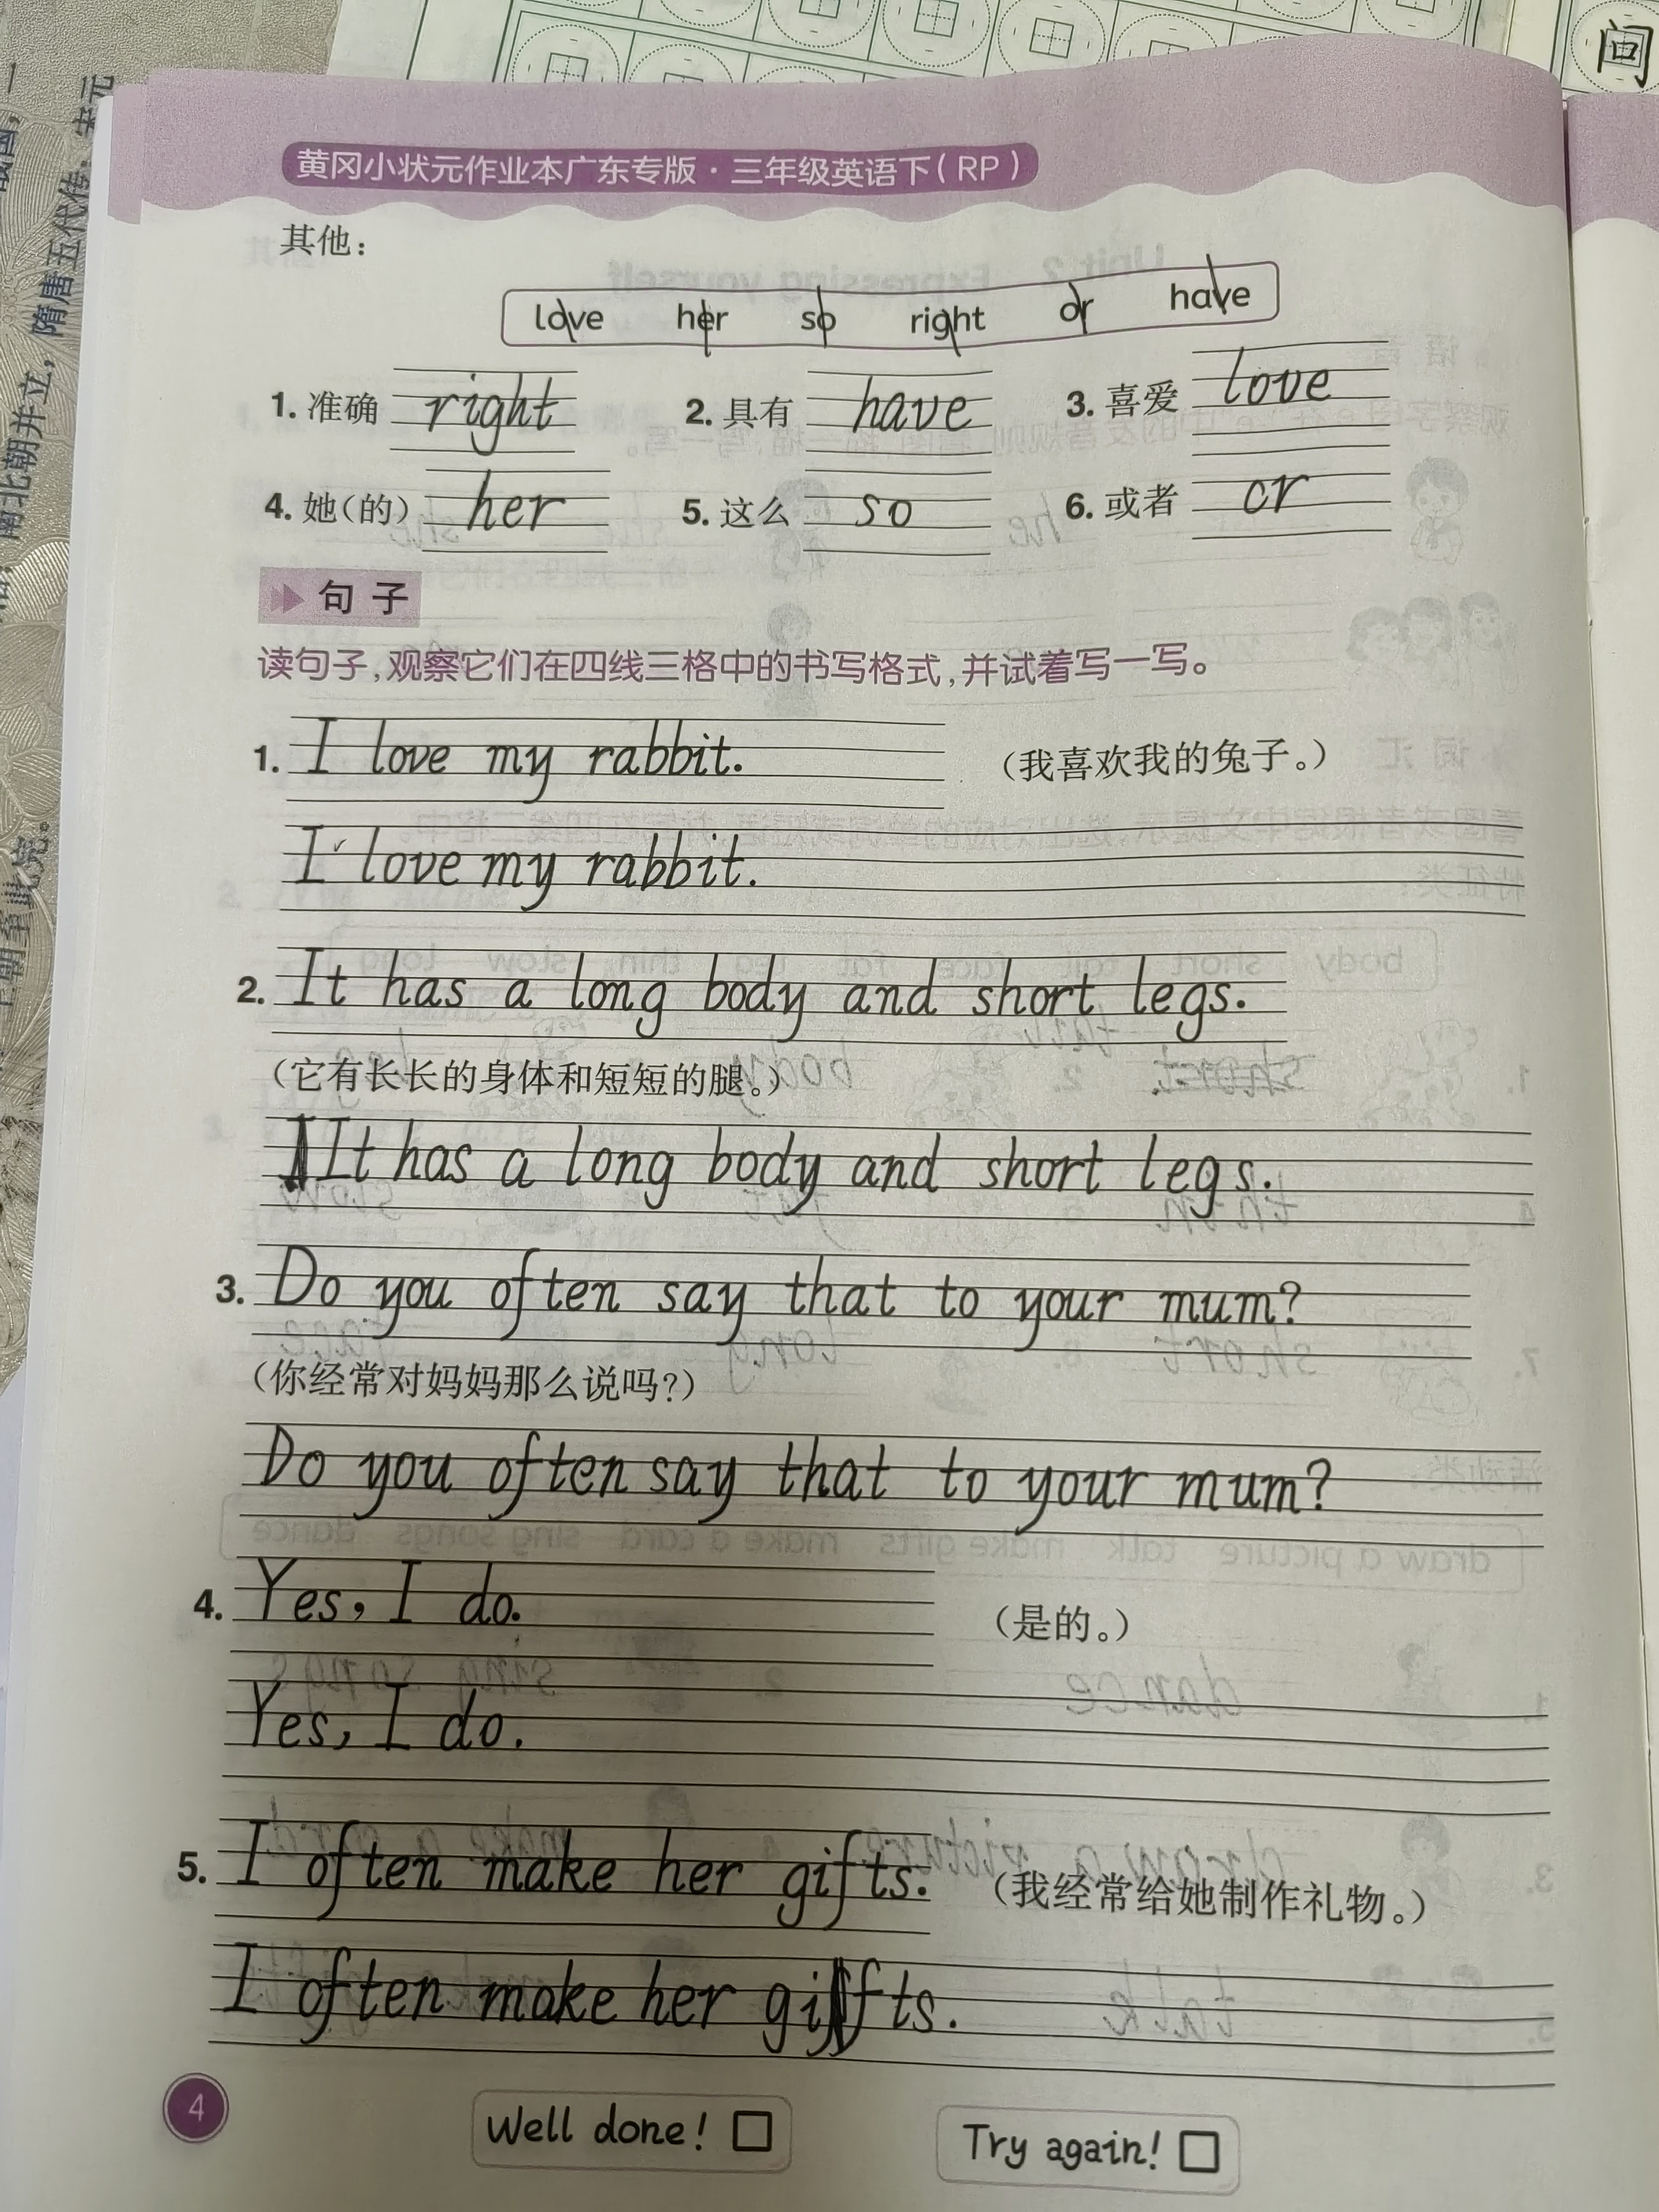 间
黄冈小状元作业本广东专版·三年级英语下(RP)
其他:
love her so right or have
1. 准确 right 2. 具有 have 3. 喜爱 love
4. 她(的) her 5. 这么 so 6. 或者 or
句子
读句子,观察它们在四线三格中的书写格式,并试着写一写。
1. I love my rabbit. (我喜欢我的兔子。)
I love my rabbit.
2. It has a long body and short legs.
(它有长长的身体和短短的腿。)
It has a long body and short legs.
3. Do you often say that to your mum?
(你经常对妈妈那么说吗?)
Do you often say that to your mum?
4. Yes, I do. (是的。)
Yes, I do.
5. I often make her gifts. (我经常给她制作礼物。)
I often make her gifts.
4
Well done! □ Try again! □